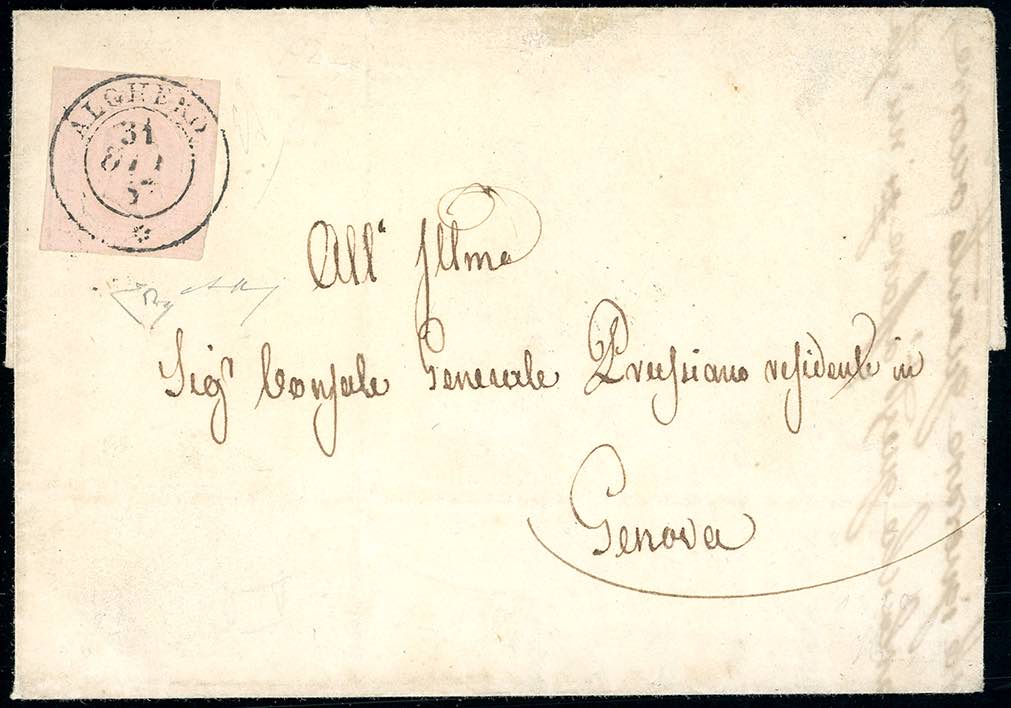 ALGHERO
31
OTT
All' Illmo
Sigr Console Generale Prussiano residente in
Genova